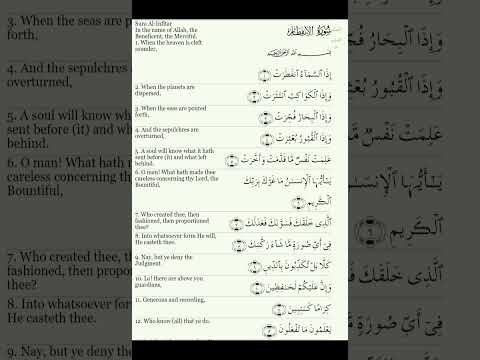 3. When the seas are
forth,
4. And the sepulchres are
overturned,
5. A soul will know what
sent before (it) and what
behind.
6. O man! What hath made
careless concerning thy
Bountiful,
7. Who created thee, then
fashioned, then proportioned
thee?
8. Into whatsoever form He
He casteth thee.
9. Nay, but ye deny the
Sura Al-Infitar
In the name of Allah, the
Beneficent, the Merciful,
1. When the heaven is cleft
asunder,
2. When the planets are
dispersed,
3. When the seas are poured
forth,
4. And the sepulchres are
overturned,
5. A soul will know what it hath
sent before (it) and what left
behind.
6. O man! What hath made thee
careless concerning thy Lord, the
Bountiful,
7. Who created thee, then
fashioned, then proportioned
thee?
8. Into whatsoever form He will,
He casteth thee.
9. Nay, but ye deny the
Judgment.
10. Lo! there are above you
guardians,
11. Generous and recording,
12. Who know (all) that ye do.
سُورَةُ الانفِطَار
بِسْمِ اللَّهِ الرَّحْمَٰنِ الرَّحِيمِ
إِذَا ٱلسَّمَآءُ ٱنفَطَرَتْ ١
وَإِذَا ٱلْكَوَاكِبُ ٱنتَثَرَتْ ٢
وَإِذَا ٱلْبِحَارُ فُجِّرَتْ ٣
وَإِذَا ٱلْقُبُورُ بُعْثِرَتْ ٤
عَلِمَتْ نَفْسٌ مَّا قَدَّمَتْ وَأَخَّرَتْ ٥
يَٰٓأَيُّهَا ٱلْإِنسَٰنُ مَا غَرَّكَ بِرَبِّكَ
ٱلْكَرِيمِ ٦
ٱلَّذِى خَلَقَكَ فَسَوَّىٰكَ فَعَدَلَكَ ٧
فِىٓ أَىِّ صُورَةٍ مَّا شَآءَ رَكَّبَكَ ٨
كَلَّا بَلْ تُكَذِّبُونَ بِٱلدِّينِ ٩
وَإِنَّ عَلَيْكُمْ لَحَٰفِظِينَ ١٠
كِرَامًا كَٰتِبِينَ ١١
يَعْلَمُونَ مَا تَفْعَلُونَ ١٢
وَإِذَا ٱلْبِحَارُ فُجِّرَ
وَإِذَا ٱلْقُبُورُ بُعْ
عَلِمَتْ نَفْسٌ مَّا
يَٰٓأَيُّهَا ٱلْإِنسَٰ
ٱلْكَرِيمِ ٦
ٱلَّذِى خَلَقَكَ
فِىٓ أَىِّ صُورَةٍ